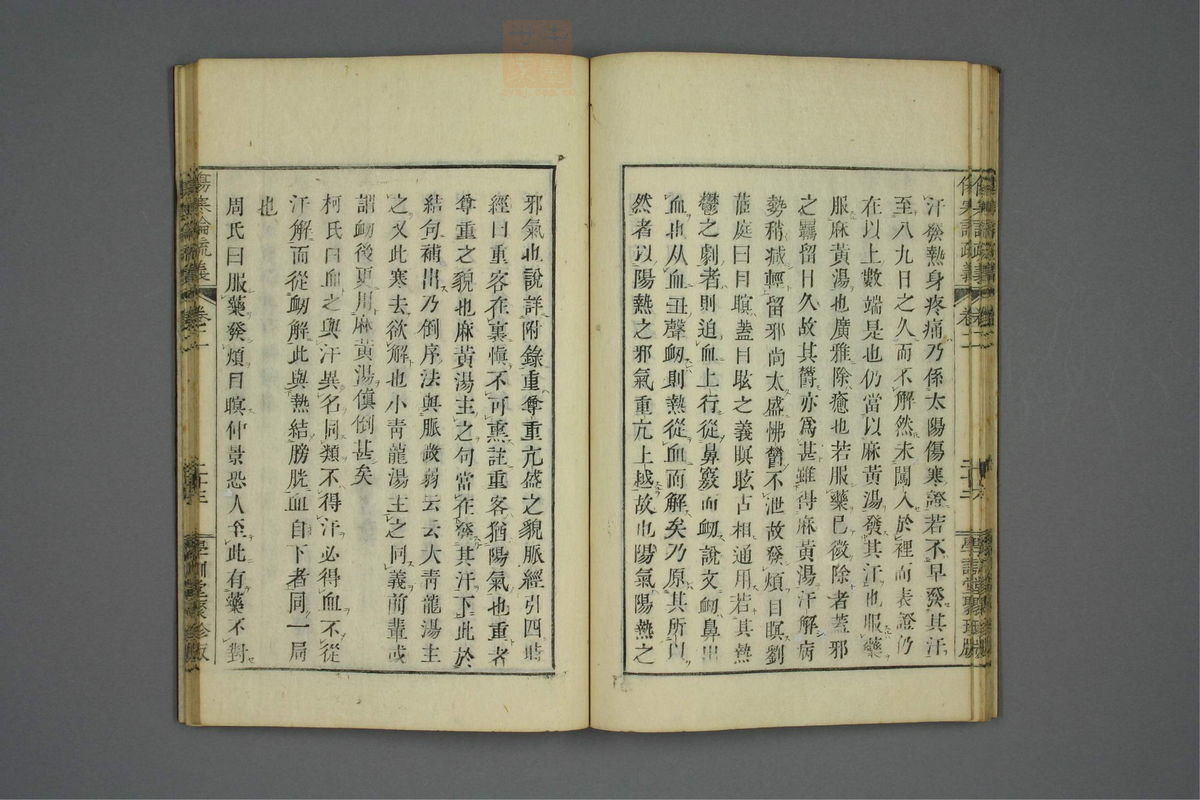 汗發熱身疼痛乃係太陽傷寒證若不早發其汗
至八九日之久而不解然未闖入於裡而表證仍
在以上數端是也仍當以麻黃湯發其汗也服藥
服麻黃湯也廣雅除癒也若服藥已微除者蓋邪
之羈留日久故其欝亦爲甚雖得麻黃湯汗解病
勢稍減輕留邪尚太盛怫欝不泄故發煩目瞑劉
茝庭曰目瞑蓋目眩之義瞑眩古相通用若其熱
鬱之劇者則迫血上行從鼻竅而衂說文衂鼻出
血也从血丑聲衂則熱從血而解矣乃原其所以
然者以陽熱之邪氣重亢上越故也陽氣陽熱之
邪氣也說詳附錄重尊重亢盛之貌脈經引四時
經曰重客在裏慎不可熏註重客猶陽氣也重者
尊重之貌也麻黃湯主之句當在發其汗下此於
結句補出乃倒序法與脈微弱云云大青龍湯主
之又此寒去欲解也小青龍湯主之同義前輩或
謂衂後更用麻黃湯傎倒甚矣
柯氏曰血之與汗異名同類不得汗必得血不從
汗解而從衂解此與熱結膀胱血自下者同一局
也
周氏曰服藥發煩目瞑仲景恐人至此有藥不對
傷寒論疏義
卷二
二十三
學訓堂聚珍版